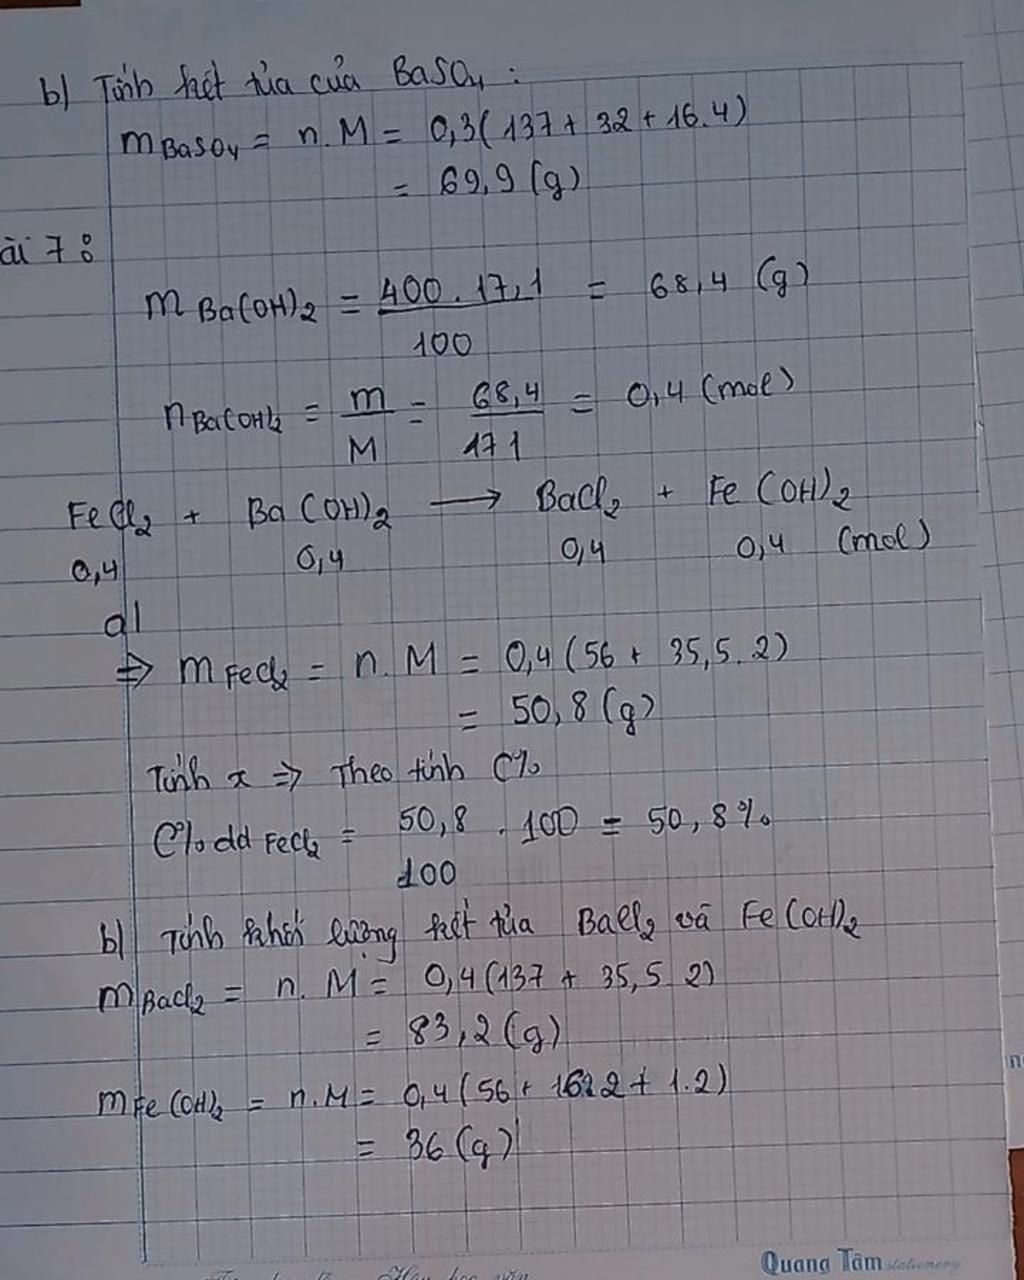 b) Tính kết tủa của BaSO₄ :
mBaSO₄ = n.M = 0,3(137 + 32 + 16.4)
= 69,9 (g)
ài 7 :
mBa(OH)₂ = 400 . 17,1 / 100 = 68,4 (g)
nBa(OH)₂ = m / M = 68,4 / 171 = 0,4 (mol)
FeCl₂ + Ba(OH)₂ → BaCl₂ + Fe(OH)₂
0,4 0,4 0,4 0,4 (mol)
a)
⇒ mFeCl₂ = n.M = 0,4(56 + 35,5.2)
= 50,8 (g)
Tính x ⇒ Theo tính C%
C% dd FeCl₂ = 50,8 / 100 . 100 = 50,8%
b) Tính khối lượng kết tủa BaCl₂ và Fe(OH)₂
mBaCl₂ = n.M = 0,4(137 + 35,5.2)
= 83,2 (g)
mFe(OH)₂ = n.M = 0,4(56 + 16.2 + 1.2)
= 36 (g)
Quang Tâm stationery